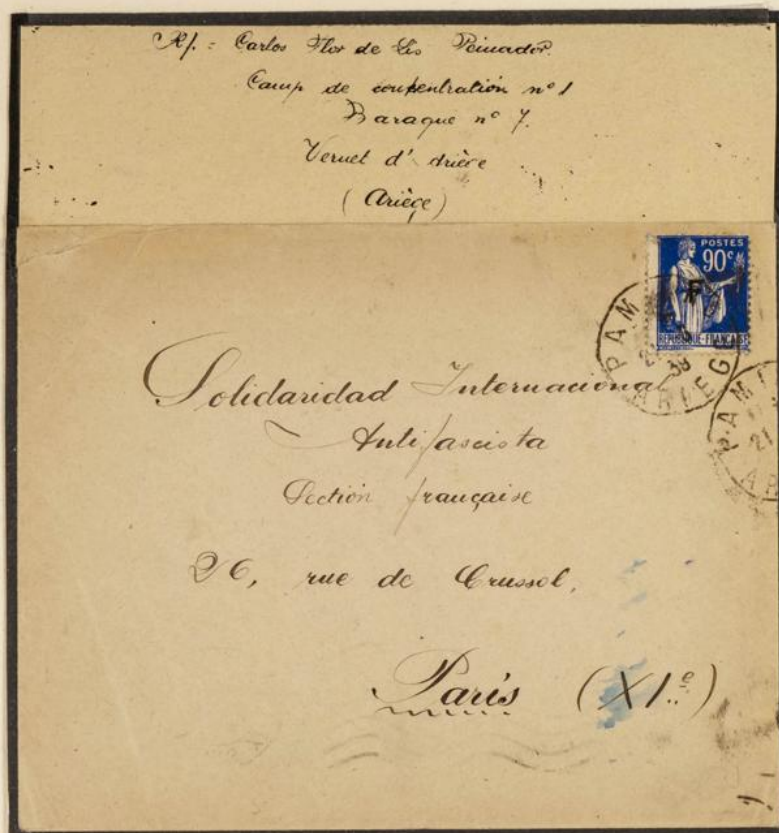 R/. = Carlos Flor de Lis Peinador.
Camp de conçentration nº 1
Baraque nº 7.
Vernet d' Ariège
(Ariège)
POSTES
90c
F
REPUBLIQUE FRANÇAISE
PAMIERS
21
39
ARIEGE
PAMI
21
Solidaridad Internacional
Antifascista
Section française
26, rue de Crussol,
París (XI.e)